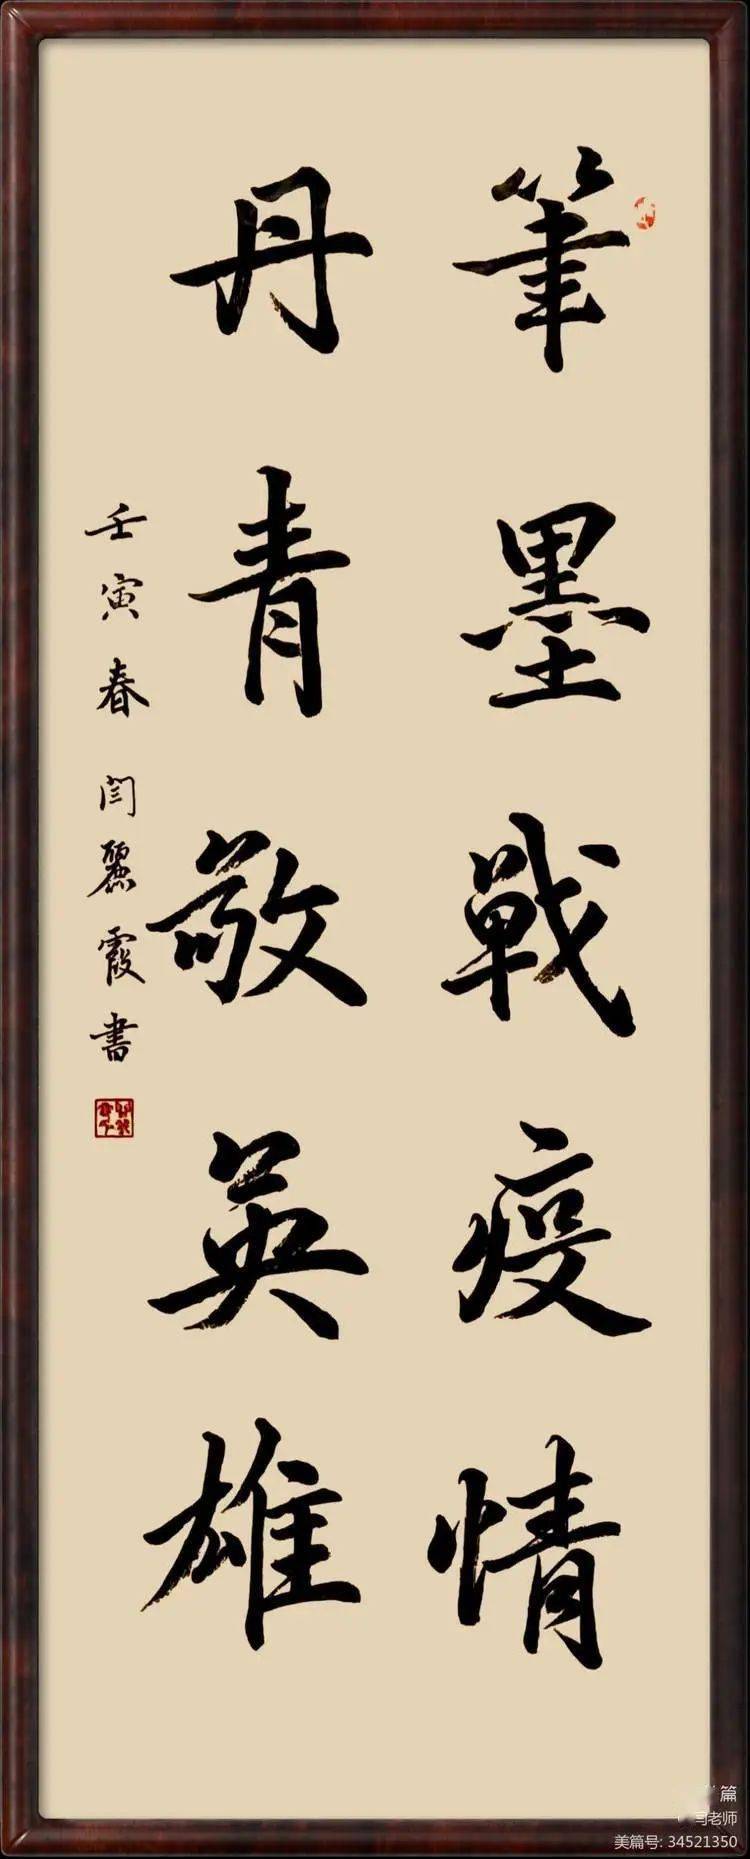 筆墨戰疫情
丹青敬英雄
壬寅春 閆麗霞書
篇
老师
美篇号: 34521350